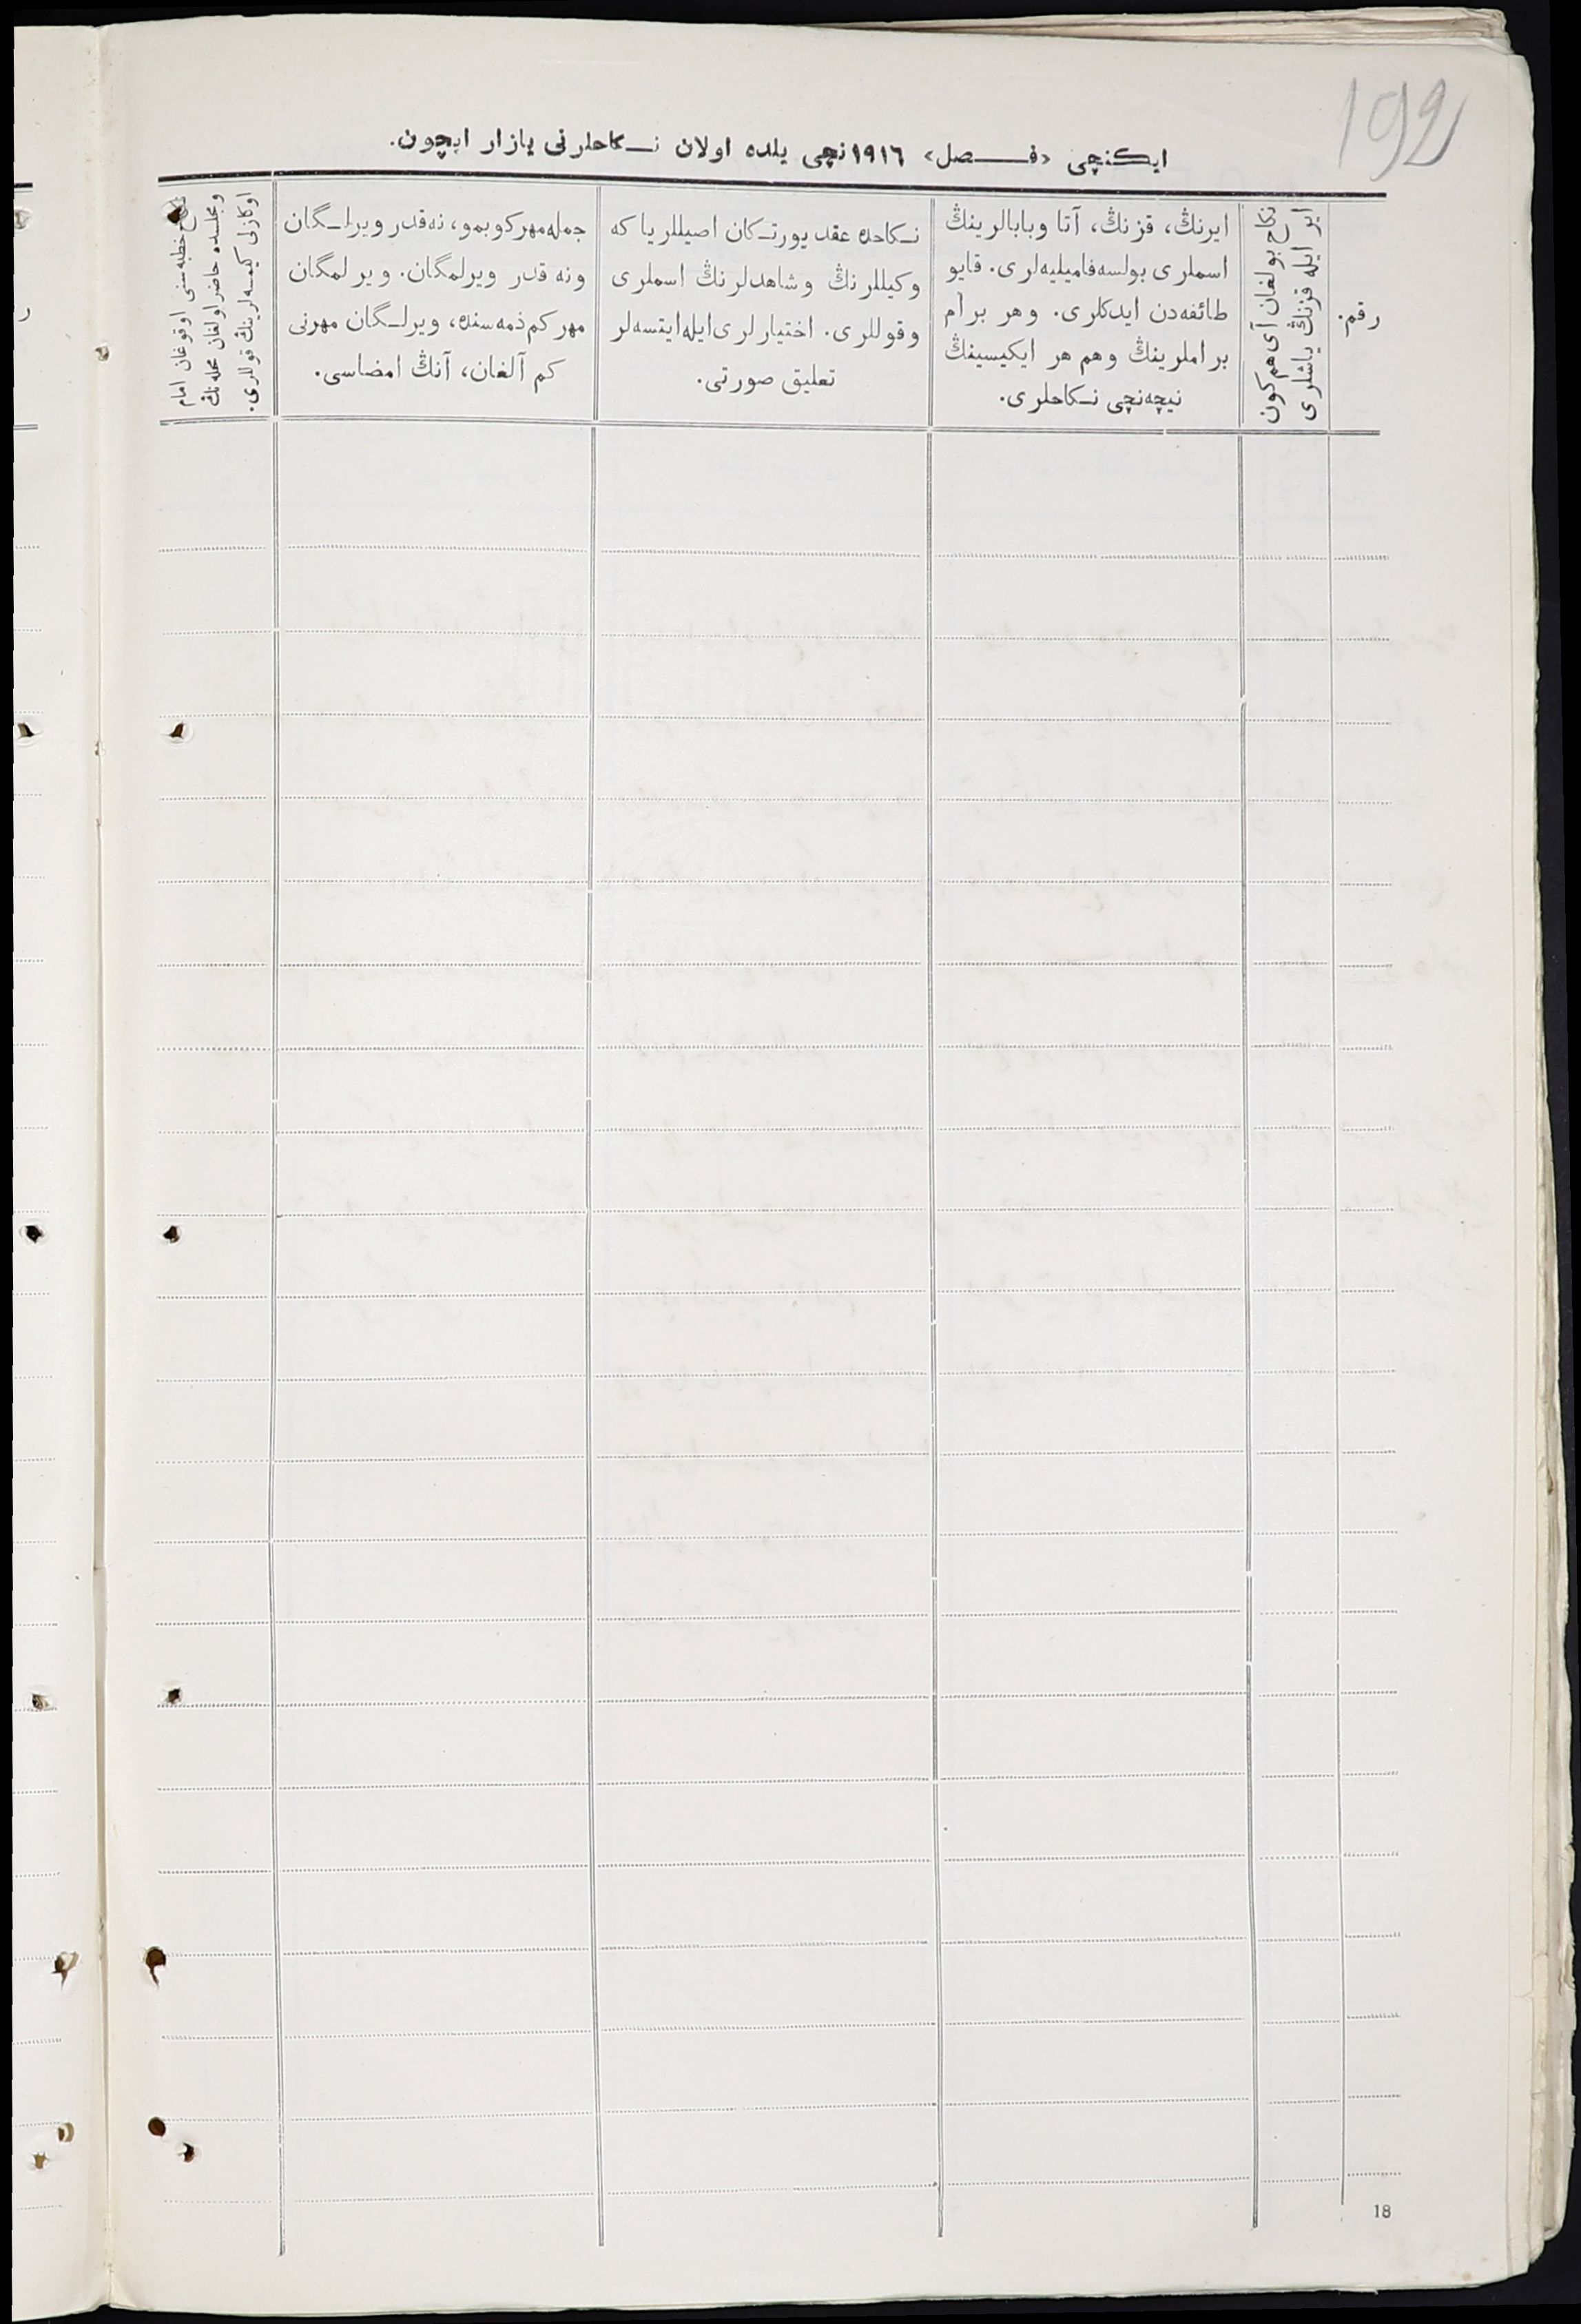 192
ایکنچی «فصل» ١٩١٦نچی یلده اولان نکاحلرنی یازار ایچون.
رقم.
نکاح بولغان آی هم کون
ایر ایله قزنڭ یاشلری
ایرنڭ، قزنڭ، آتا وبابالرینڭ
اسملری بولسه‌فامیلیه‌لری. قایو
طائفه‌دن ایدکلری. وهر برآم
براملرینڭ وهم هر ایکیسینڭ
نیچه‌نچی نکاحلری.
نکاحده عقد یورتکان اصیللریا که
وکیللرنڭ وشاهدلرنڭ اسملری
وقوللری. اختیارلری‌ایله‌ایتسه‌لر
تعلیق صورتی.
جمله‌مهرکوبمو، نه‌قدر ویرلگان
ونه قدر ویرلمگان. ویرلمگان
مهرکم‌ذمه‌سنده، ویرلگان مهرنی
کم آلغان، آنڭ امضاسی.
خطبه‌سنی اوقوغان امام
ومجلسده حاضر اولغان محله‌نڭ
اوکازلی کیمسه‌لرینڭ قوللری.
18